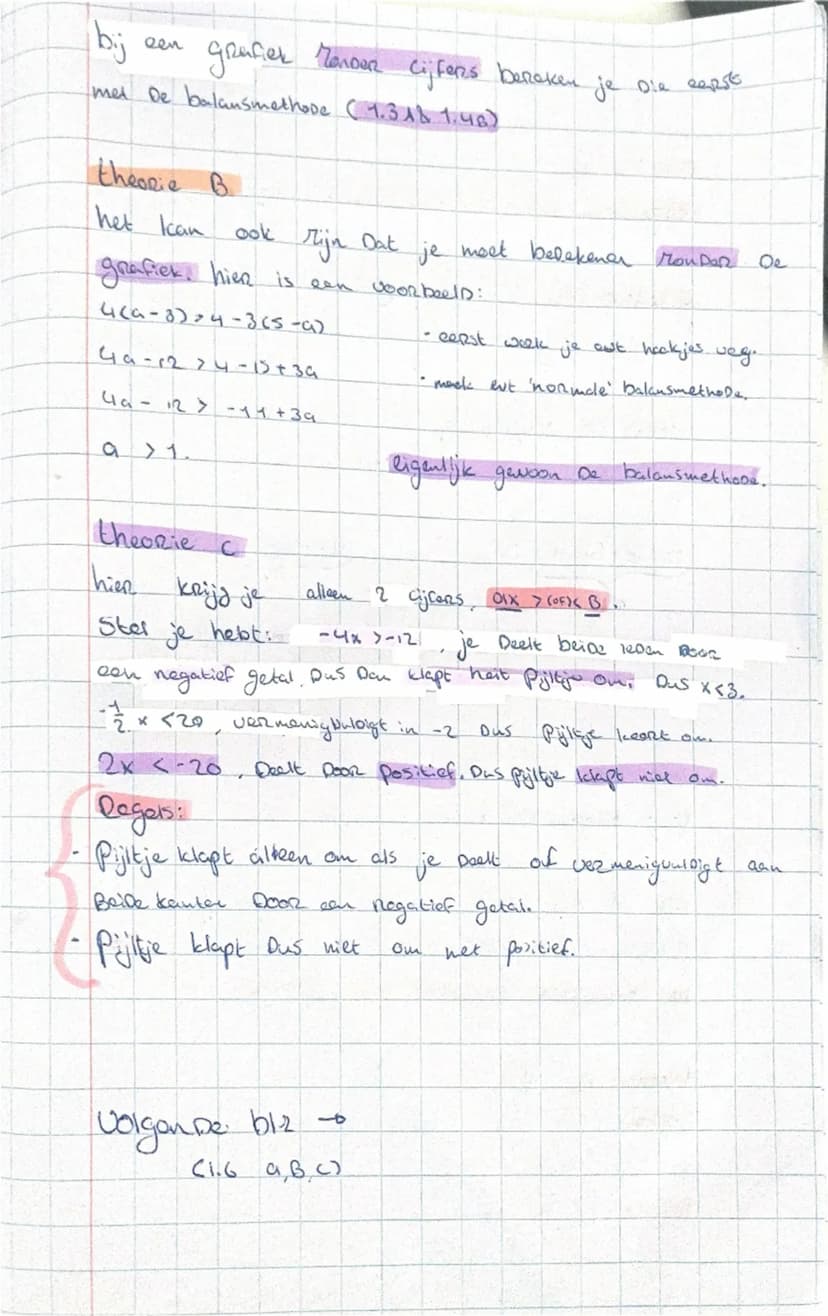 bij een grafiek zonder cijfers bereken je die eerst
met De balansmethode (1.3A & 1.4B)
theorie B
het kan ook zijn Dat je moet berekenen zonder De
grafiek. hier is een voorbeeld:
4(a-3)>4-3(5-a)
- eerst werk je evt haakjes weg.
4a-12>4-15+3a
- maak evt 'normale' balansmethode.
4a-12> -11+3a
a >1.
eigenlijk gewoon De balansmethode.
theorie C
hier krijg je alleen 2 cijfers, ax >(of)< B.
Stel je hebt: -4x >-12, je Deelt beide leden Door
een negatief getal. Dus Dan klapt heit pijltje om. Dus x<3.
-½x <20, vermenigvuldigt in -2 Dus pijltje keert om.
2x <-20, Deelt Door positief. Dus pijltje klapt niet om.
Regels:
- Pijltje klapt alleen om als je Deelt of vermenigvuldigt aan
Beide kanten Door een negatief getal.
- Pijltje klapt Dus niet om met positief.
Volgende blz →
(1.6 a,B,C)